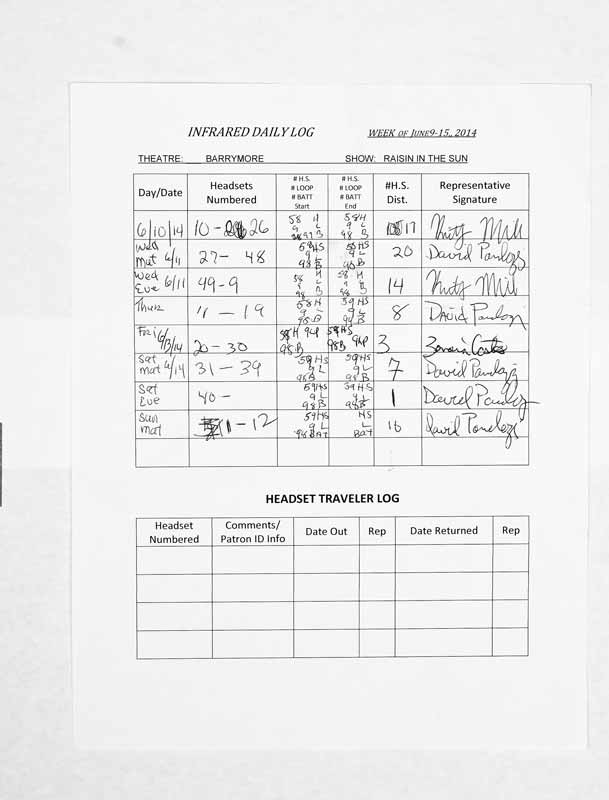 INFRARED DAILY LOG WEEK OF JUNE9-15,, 2014
THEATRE: BARRYMORE SHOW: RAISIN IN THE SUN
Day/Date Headsets Numbered # H.S. # LOOP # BATT Start # H.S. # LOOP # BATT End #H.S. Dist. Representative Signature
6/10/14 10 - 26 58 H 9 L 98 B 58H 9 L 98 B 17
Wed Mat 6/11 27 - 48 58HS 9L 98B 58HS 9L 98B 20 David
Wed Eve 6/11 49-9 58 H 9 L 98 B 58 H 9 L 98 B 14
Thur 11 - 19 58H 9L 98B 59HS 9L 98B 8 David
Fri 6/13/14 20 - 30 58H 94P 98B 58HS 94P 98B 3
Sat Mat 6/14 31 - 39 59HS 9L 98B 59HS 9L 98B 7 David
Sat Eve 40 - 59HS 9L 98B 59HS 9L 98B 1 David
Sun Mat 11 - 12 59HS 9L 98BAT HS L BAT 16 David
HEADSET TRAVELER LOG
Headset Numbered Comments/ Patron ID Info Date Out Rep Date Returned Rep